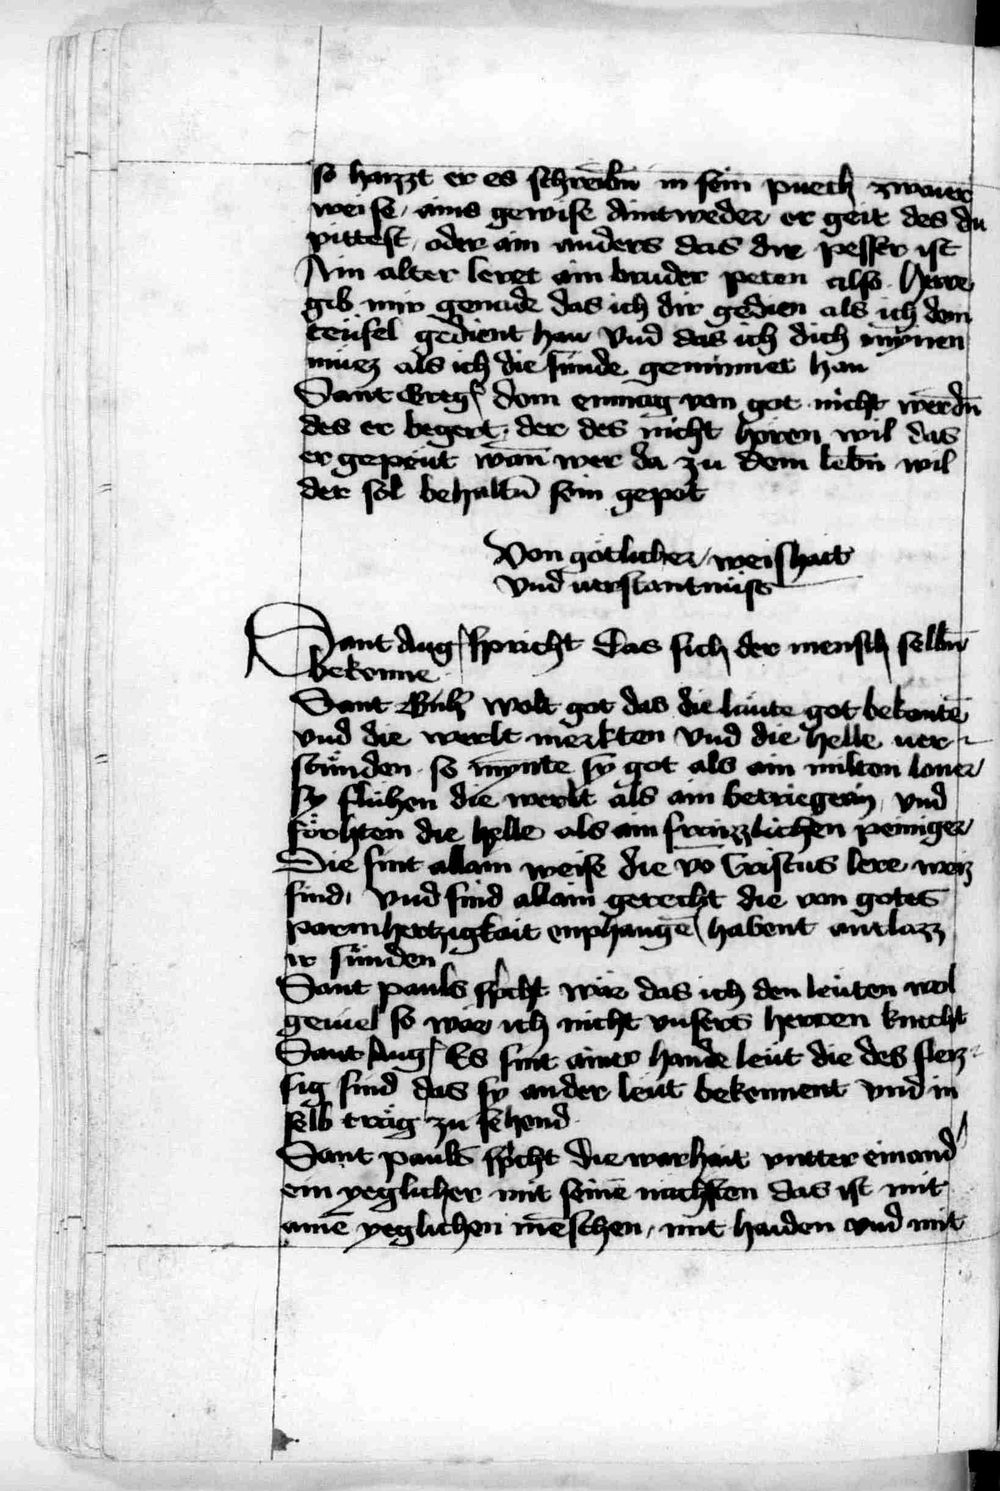 so haizzt er es schreibn̄ in sein puech zwaier
weise / ains gewise Aintweder er geit des du
pittest / oder ain anders das dir pesser ist
Ain alter leret ain bruder peten also Herre
gib mir genade das ich dir gedien als ich dem
teüfel gedient han Vnd das ich dich mynnen
müez als ich die sunde geminnet han
Sant Greg dem enmag von got nicht werdn̄
des er begert / der des nicht hören wil das
er gepeut wan̄ wer da zu dem lebn̄ wil
der sol behaltn̄ sein gepot
Von götlicher / weishait
Vnd verstantnüss
Sant Aug spricht Das sich der mensch selbn̄
bekenne
Sant wolt got das die läute got bekantē
vnd die werlt merkten Vnd die helle ver
stünden so mynte sy got als ain milten loner
sy fluhen die werlt als ain betriegerin / vnd
förhten die helle als ain fraizzlichen peiniger
Die sint allain weise die vō Cristus lere weis
sind / Vnd sind allain gerecht die von gotes
parmhertzigkait enphangē habent antlazz
ir sünden
Sant pauls spcht wär das ich den leüten wol
geuiel so wär ich nicht vnsers herren knecht
Sant Aug Es sint ainer hande leüt die des fleiz
sig sind das sy ander leüt bekennent Vnd in
selb träg zu sehend
Sant pauls spcht die warhait vntter einand
ein yeglicher mit seinē nachsten das ist mit
ainē yeglichen mēschen / mit haiden vnd mit